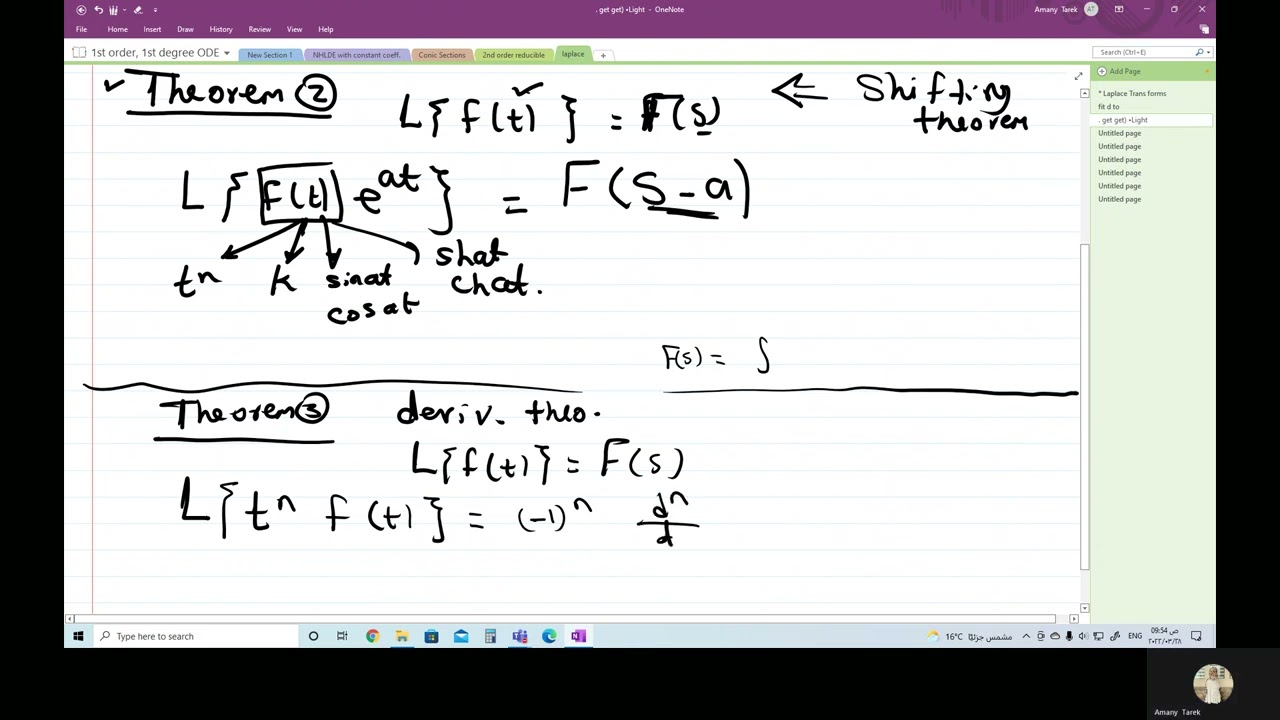 . get get) •Light - OneNote
Amany Tarek AT
File Home Insert Draw History Review View Help
1st order, 1st degree ODE New Section 1 NHLDE with constant coeff. Conic Sections 2nd order reducible laplace +
Search (Ctrl+E)
Add Page
* Laplace Trans forms
fit d to
. get get) •Light
Untitled page
Untitled page
Untitled page
Untitled page
Untitled page
Untitled page
✓ Theorem ② L{f(t)} = F(s) ⇐ Shifting theorem
L{f(t) e^{at}} = F(S-a)
t^n k sinat cosat shat chat.
F(s) = ∫
Theorem ③ deriv. theo.
L{f(t)} = F(s)
L{t^n f(t)} = (-1)^n d^n/d
Type here to search
16°C مشمس جزئيًا ENG 09:54 ص
٢٠٢٢/٠٣/٢٨
Amany Tarek